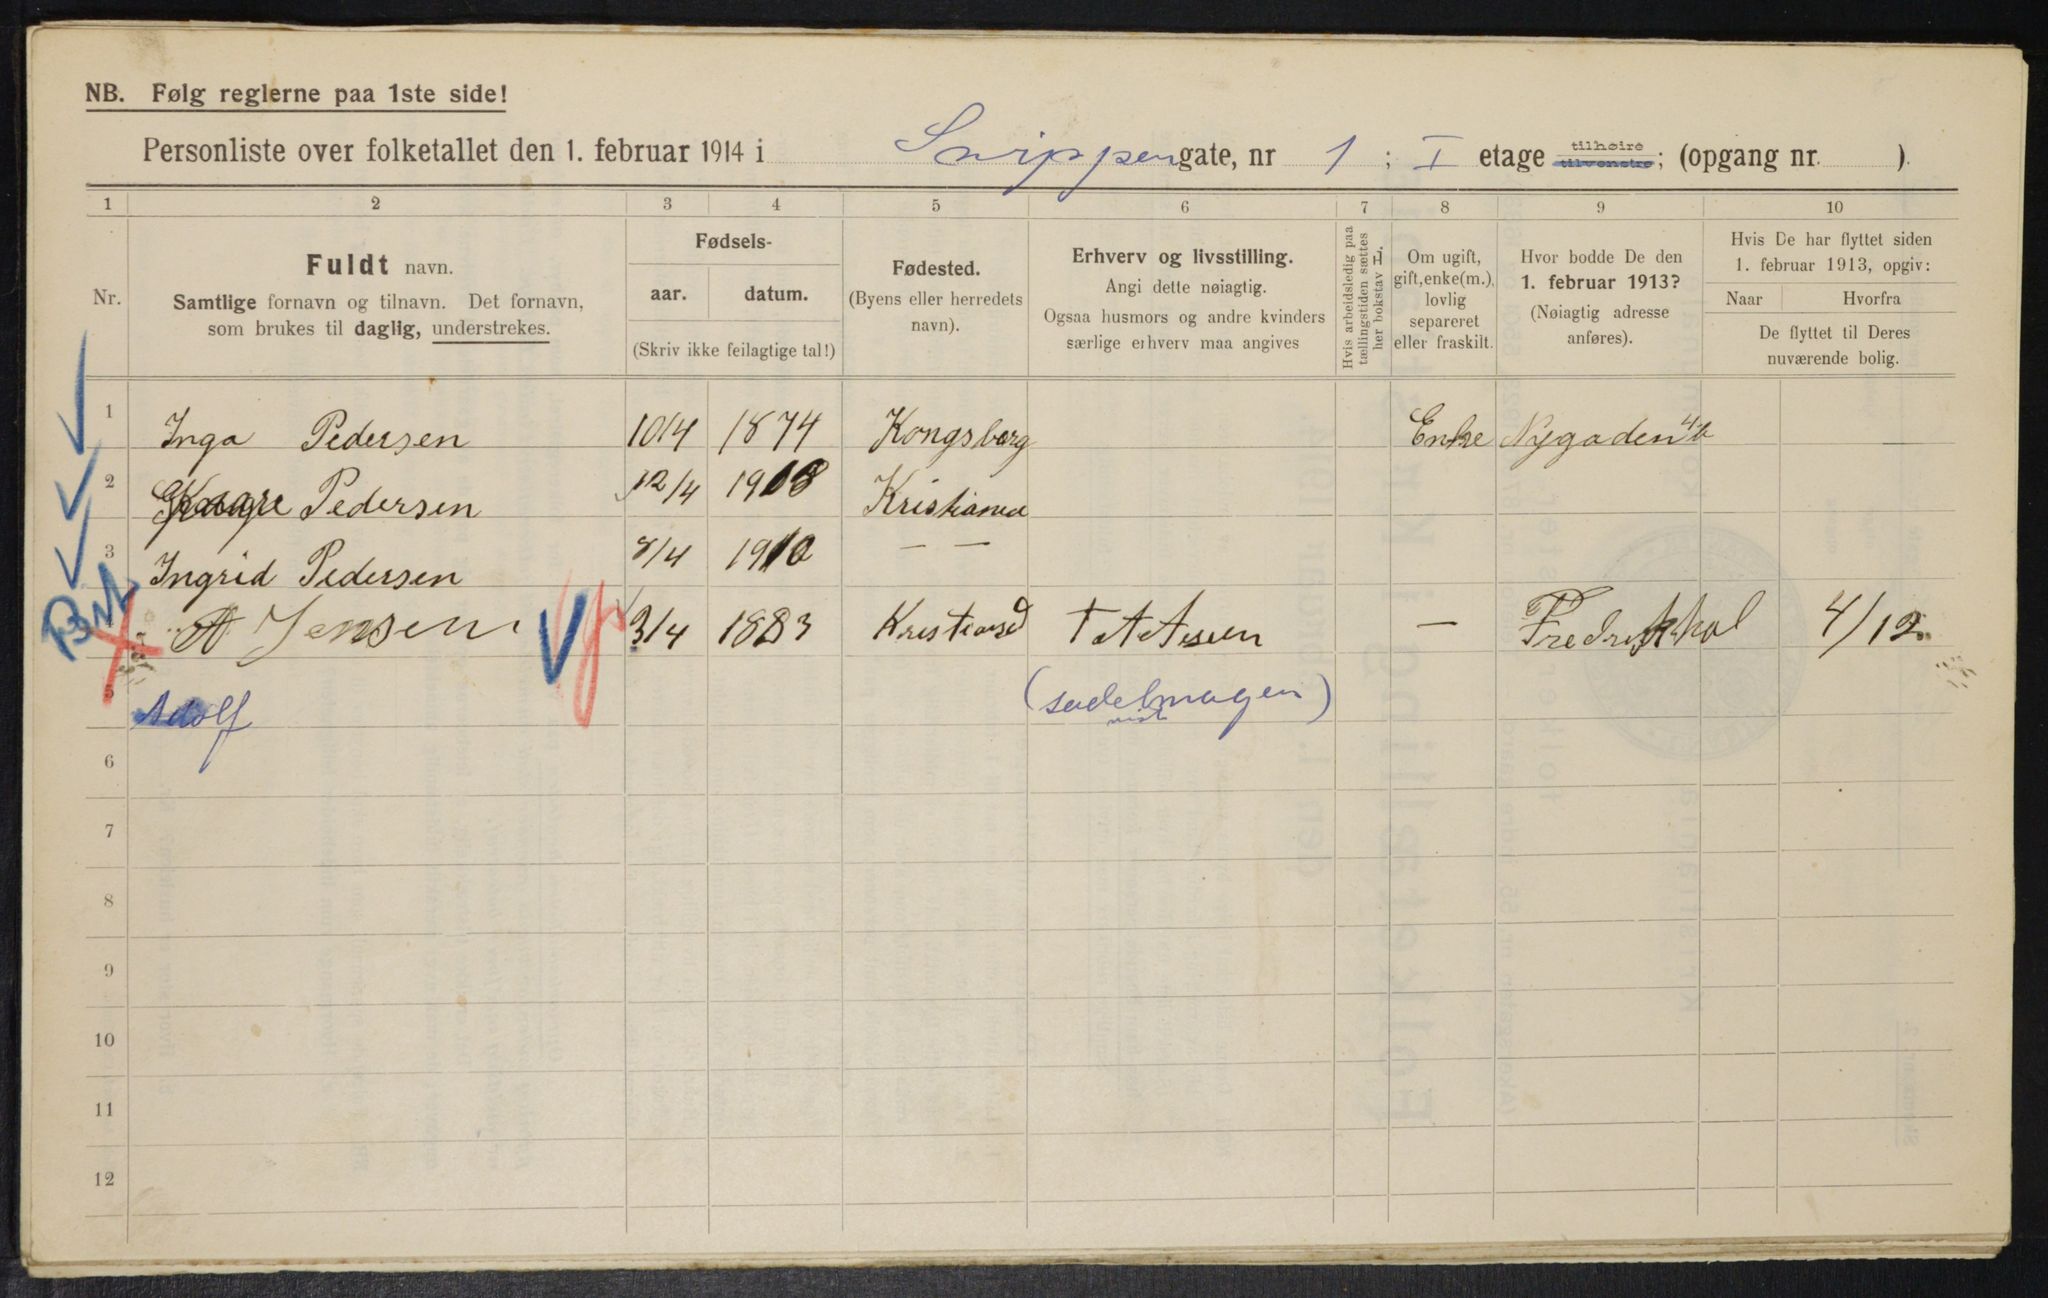 NB. Følg reglerne paa 1ste side!
Personliste over folketallet den 1. februar 1914 i Snippengate, nr 1 ; I etage tilhøire tilvenstre; (opgang nr. ).
1 2 3 4 5 6 7 8 9 10
Nr.
Fuldt navn.
Samtlige fornavn og tilnavn. Det fornavn,
som brukes til daglig, understrekes.
Fødsels-
aar. datum.
(Skriv ikke feilagtige tal!)
Fødested.
(Byens eller herredets
navn).
Erhverv og livsstilling.
Angi dette nøiagtig.
Ogsaa husmors og andre kvinders
særlige erhverv maa angives
Hvis arbeidsledig paa
tællingstiden sættes
her bokstav L.
Om ugift,
gift, enke(m.),
lovlig
separeret
eller fraskilt.
Hvor bodde De den
1. februar 1913?
(Nøiagtig adresse
anføres).
Hvis De har flyttet siden
1. februar 1913, opgiv:
Naar Hvorfra
De flyttet til Deres
nuværende bolig.
1 Inga Pedersen 10/4 1874 Kongsberg Enke Nygaden 4b
2 Pedersen 12/4 1908 Kristiania
3 Ingrid Pedersen 8/4 1910 — —
4 A Jensen 3/4 1883 Kristiansd — 4/12
5 Adolf (sadelmagersvend)
6
7
8
9
10
11
12